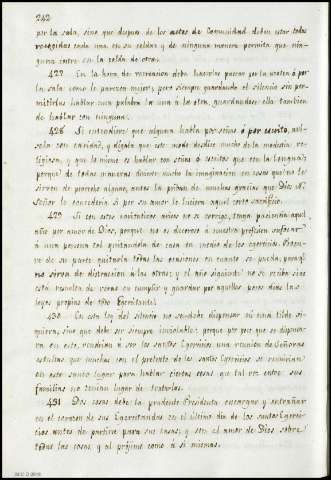 242
por la sala, sino que despues de los actos de Comunidad deben estar todas
recogidas cada una en su celda; y de ninguna manera permita que nin-
guna entre en la celda de otra.
427. En la hora de recreacion deba hacerlas pasear por la huerta ó por
la sala como le parezca mejor; pero siempre guardando el silencio sin per-
mitirlas hablar una palabra la una á la otra, guardandose ella tambien
de hablar con ninguna.
428. Si entendiere que alguna habla por señas ó por escrito, aví-
sela con caridad, y dígala que este modo desdice mucho de la modestia re-
ligiosa, y que lo mismo es hablar con señas ó escritos que con la lengua;
porque de todas maneras divierte mucho la imaginacion en cosas que no le
sirven de provecho alguno, antes la privan de muchas gracias que Dios N.
Señor le concederia si por su amor le hiciera aquel corto sacrificio.
429. Si con estos caritativos avisos no se corrige, tenga paciencia aquel
año por amor de Dios, porque no es decoroso á nuestra profesion sufocar
á una persona tal quitandola de casa en medio de los egercicios. Procu-
re de su parte quitarla todas las ocasiones en cuanto se pueda, para q.e
no sirva de distraccion á las otras; y el año siguiente no se reciba sino
está resuelta de veras en cumplir y guardar por aquellos pocos dias las
leyes propias de toda Egercitante.
430. En esta ley del silencio no se debe dispensar ni una tilde si-
quiera, sino que debe ser siempre inviolable: porque por poco que se dispensa-
ra en esto, vendrian á ser los santos Egercicios una reunion de Señoras
estultas que muchas con el pretexto de los santos Egercicios se reunirian
en este santo lugar para hablar ciertas cosas que tal vez entre sus
familias no tenian lugar de tratarlas.
431. Dos cosas debe la prudente Presidenta encargar y entrañar
en el corazon de sus Egercitandas en el último dia de los santos Egerci-
cios antes de partirse para sus casas; y son el amor de Dios sobre
todas las cosas, y al prójimo como á sí mismas.